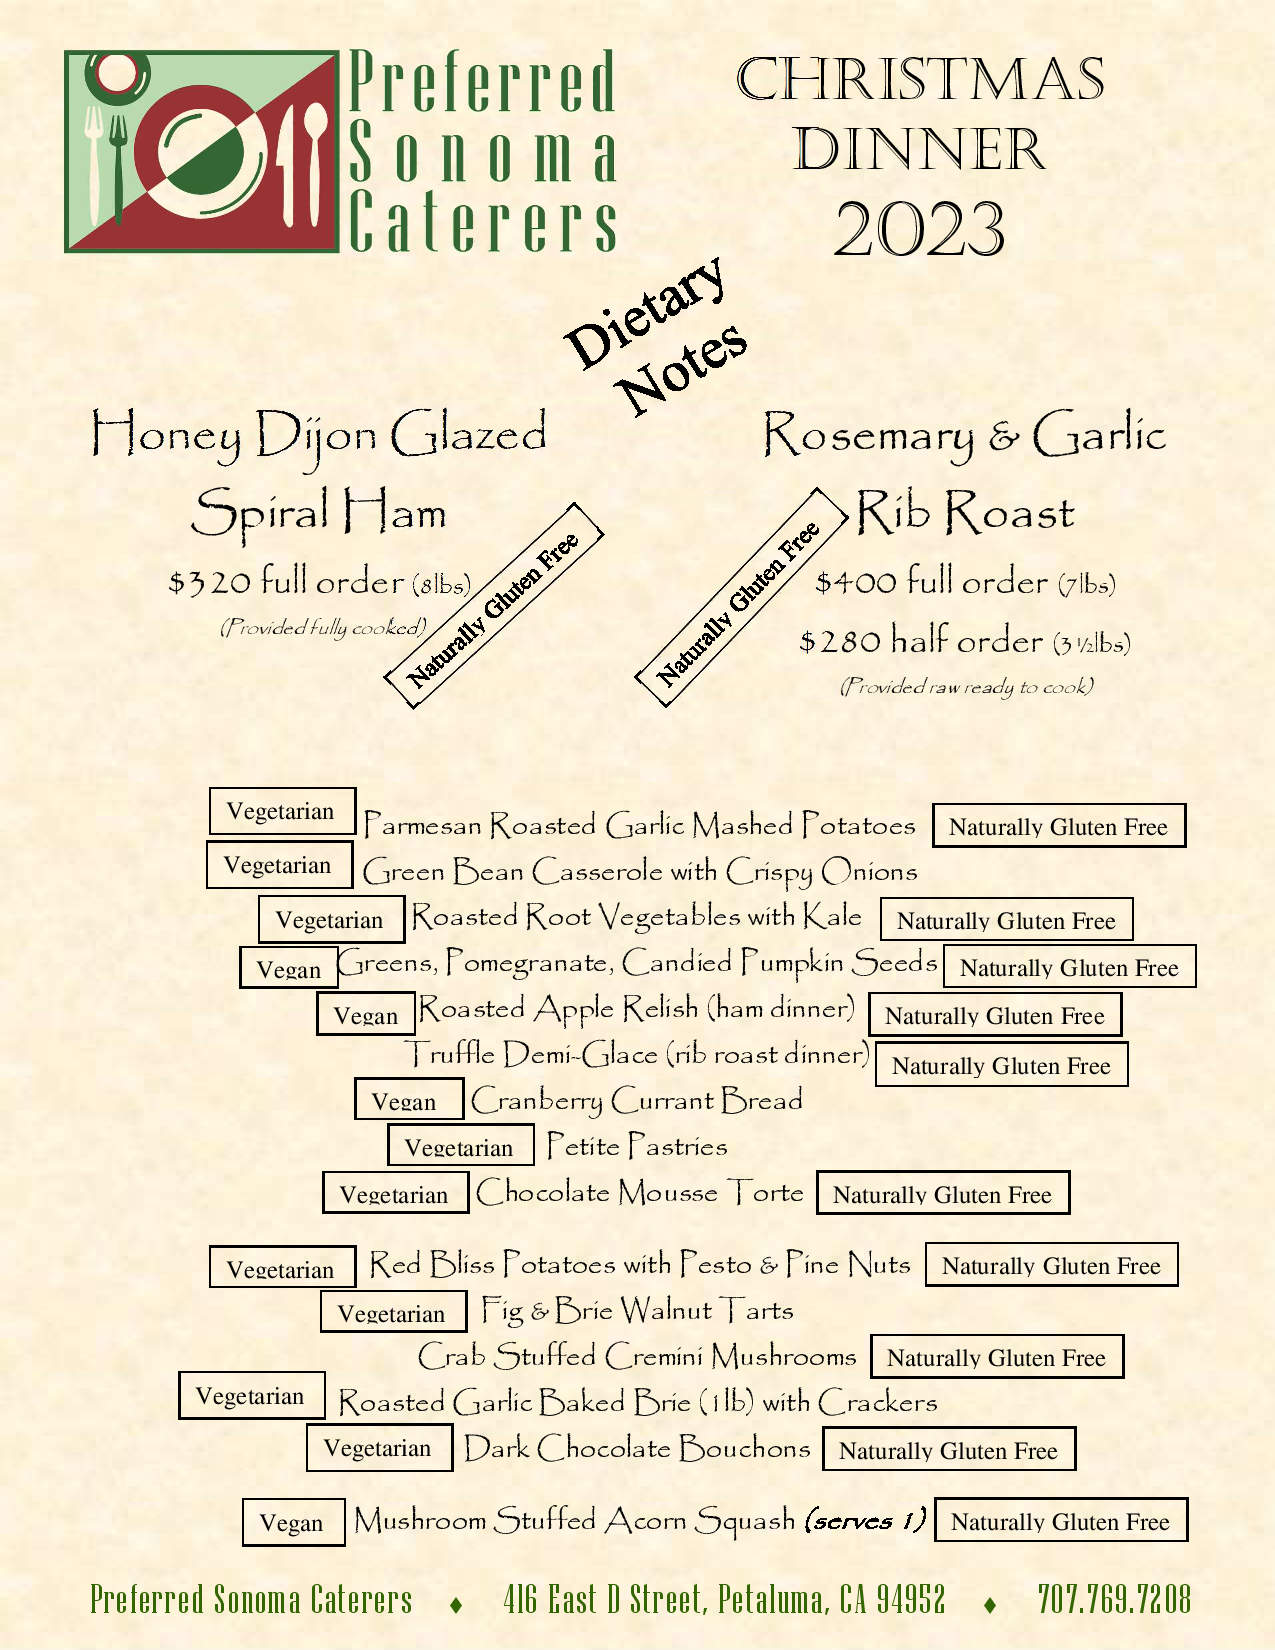 Preferred
Sonoma
Caterers
CHRISTMAS
DINNER
2023
Dietary
Notes
Honey Dijon Glazed
Spiral Ham
$320 full order (8lbs)
(Provided fully cooked)
Naturally Gluten Free
Rosemary & Garlic
Rib Roast
$400 full order (7lbs)
$280 half order (3 ½lbs)
(Provided raw ready to cook)
Naturally Gluten Free
Vegetarian Parmesan Roasted Garlic Mashed Potatoes Naturally Gluten Free
Vegetarian Green Bean Casserole with Crispy Onions
Vegetarian Roasted Root Vegetables with Kale Naturally Gluten Free
Vegan Greens, Pomegranate, Candied Pumpkin Seeds Naturally Gluten Free
Vegan Roasted Apple Relish (ham dinner) Naturally Gluten Free
Truffle Demi-Glace (rib roast dinner) Naturally Gluten Free
Vegan Cranberry Currant Bread
Vegetarian Petite Pastries
Vegetarian Chocolate Mousse Torte Naturally Gluten Free
Vegetarian Red Bliss Potatoes with Pesto & Pine Nuts Naturally Gluten Free
Vegetarian Fig & Brie Walnut Tarts
Crab Stuffed Cremini Mushrooms Naturally Gluten Free
Vegetarian Roasted Garlic Baked Brie (1 lb) with Crackers
Vegetarian Dark Chocolate Bouchons Naturally Gluten Free
Vegan Mushroom Stuffed Acorn Squash (serves 1) Naturally Gluten Free
Preferred Sonoma Caterers ♦ 416 East D Street, Petaluma, CA 94952 ♦ 707.769.7208